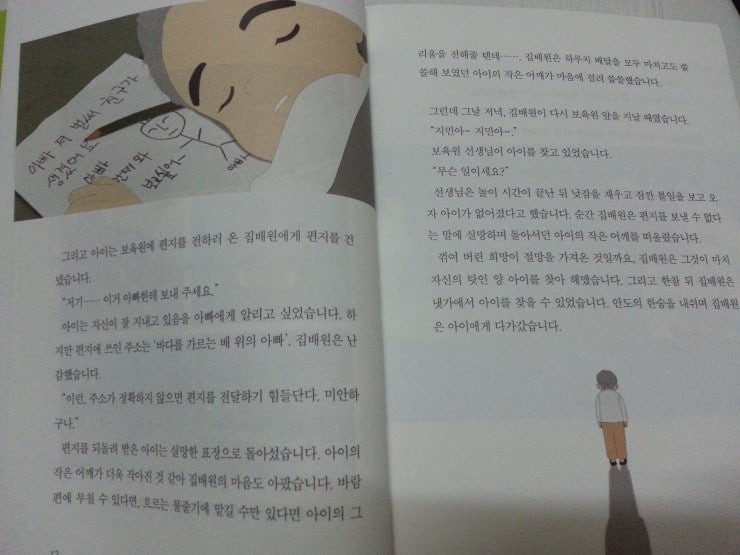 아빠 저 벌써 친구가
생겼어요
아빠
언제 와
보고싶어~
아빠
그리고 아이는 보육원에 편지를 전하러 온 집배원에게 편지를 건
넸습니다.
“저기…… 이거 아빠한테 보내 주세요.”
아이는 자신이 잘 지내고 있음을 아빠에게 알리고 싶었습니다. 하
지만 편지에 쓰인 주소는 ‘바다를 가르는 배 위의 아빠’. 집배원은 난
감했습니다.
“이런, 주소가 정확하지 않으면 편지를 전달하기 힘들단다. 미안하
구나.”
편지를 되돌려 받은 아이는 실망한 표정으로 돌아섰습니다. 아이의
작은 어깨가 더욱 작아진 것 같아 집배원의 마음도 아팠습니다. 바람
편에 부칠 수 있다면, 흐르는 물줄기에 맡길 수만 있다면 아이의 그
12
리움을 전해줄 텐데……, 집배원은 하루치 배달을 모두 마치고도 쓸
쓸해 보였던 아이의 작은 어깨가 마음에 걸려 쓸쓸했습니다.
그런데 그날 저녁, 집배원이 다시 보육원 앞을 지날 때였습니다.
“지민아~ 지민아~.”
보육원 선생님이 아이를 찾고 있었습니다.
“무슨 일이세요?”
선생님은 놀이 시간이 끝난 뒤 낮잠을 재우고 잠깐 볼일을 보고 오
자 아이가 없어졌다고 했습니다. 순간 집배원은 편지를 보낼 수 없다
는 말에 실망하며 돌아서던 아이의 작은 어깨를 떠올렸습니다.
꺾여 버린 희망이 절망을 가져온 것일까요, 집배원은 그것이 마치
자신의 탓인 양 아이를 찾아 헤맸습니다. 그리고 한참 뒤 집배원은
냇가에서 아이를 찾을 수 있었습니다. 안도의 한숨을 내쉬며 집배원
은 아이에게 다가갔습니다.